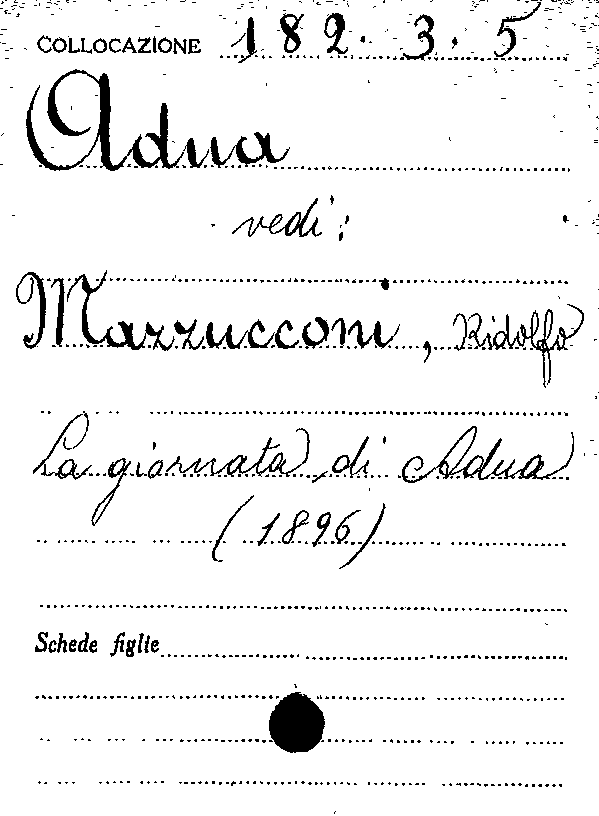 COLLOCAZIONE 182. 3. 5
Adua
vedi:
Mazzucconi, Ridolfo
La giornata di Adua
(1896)
Schede figlie